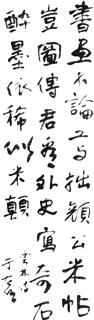 書畫不論工與拙顏公米帖
豈圖傳君看外史寫奇石
醉墨依稀似米顛